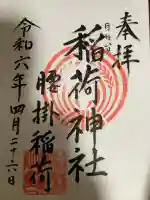 奉拝
稲荷神社
腰掛稲荷
令和六年四月二十六日